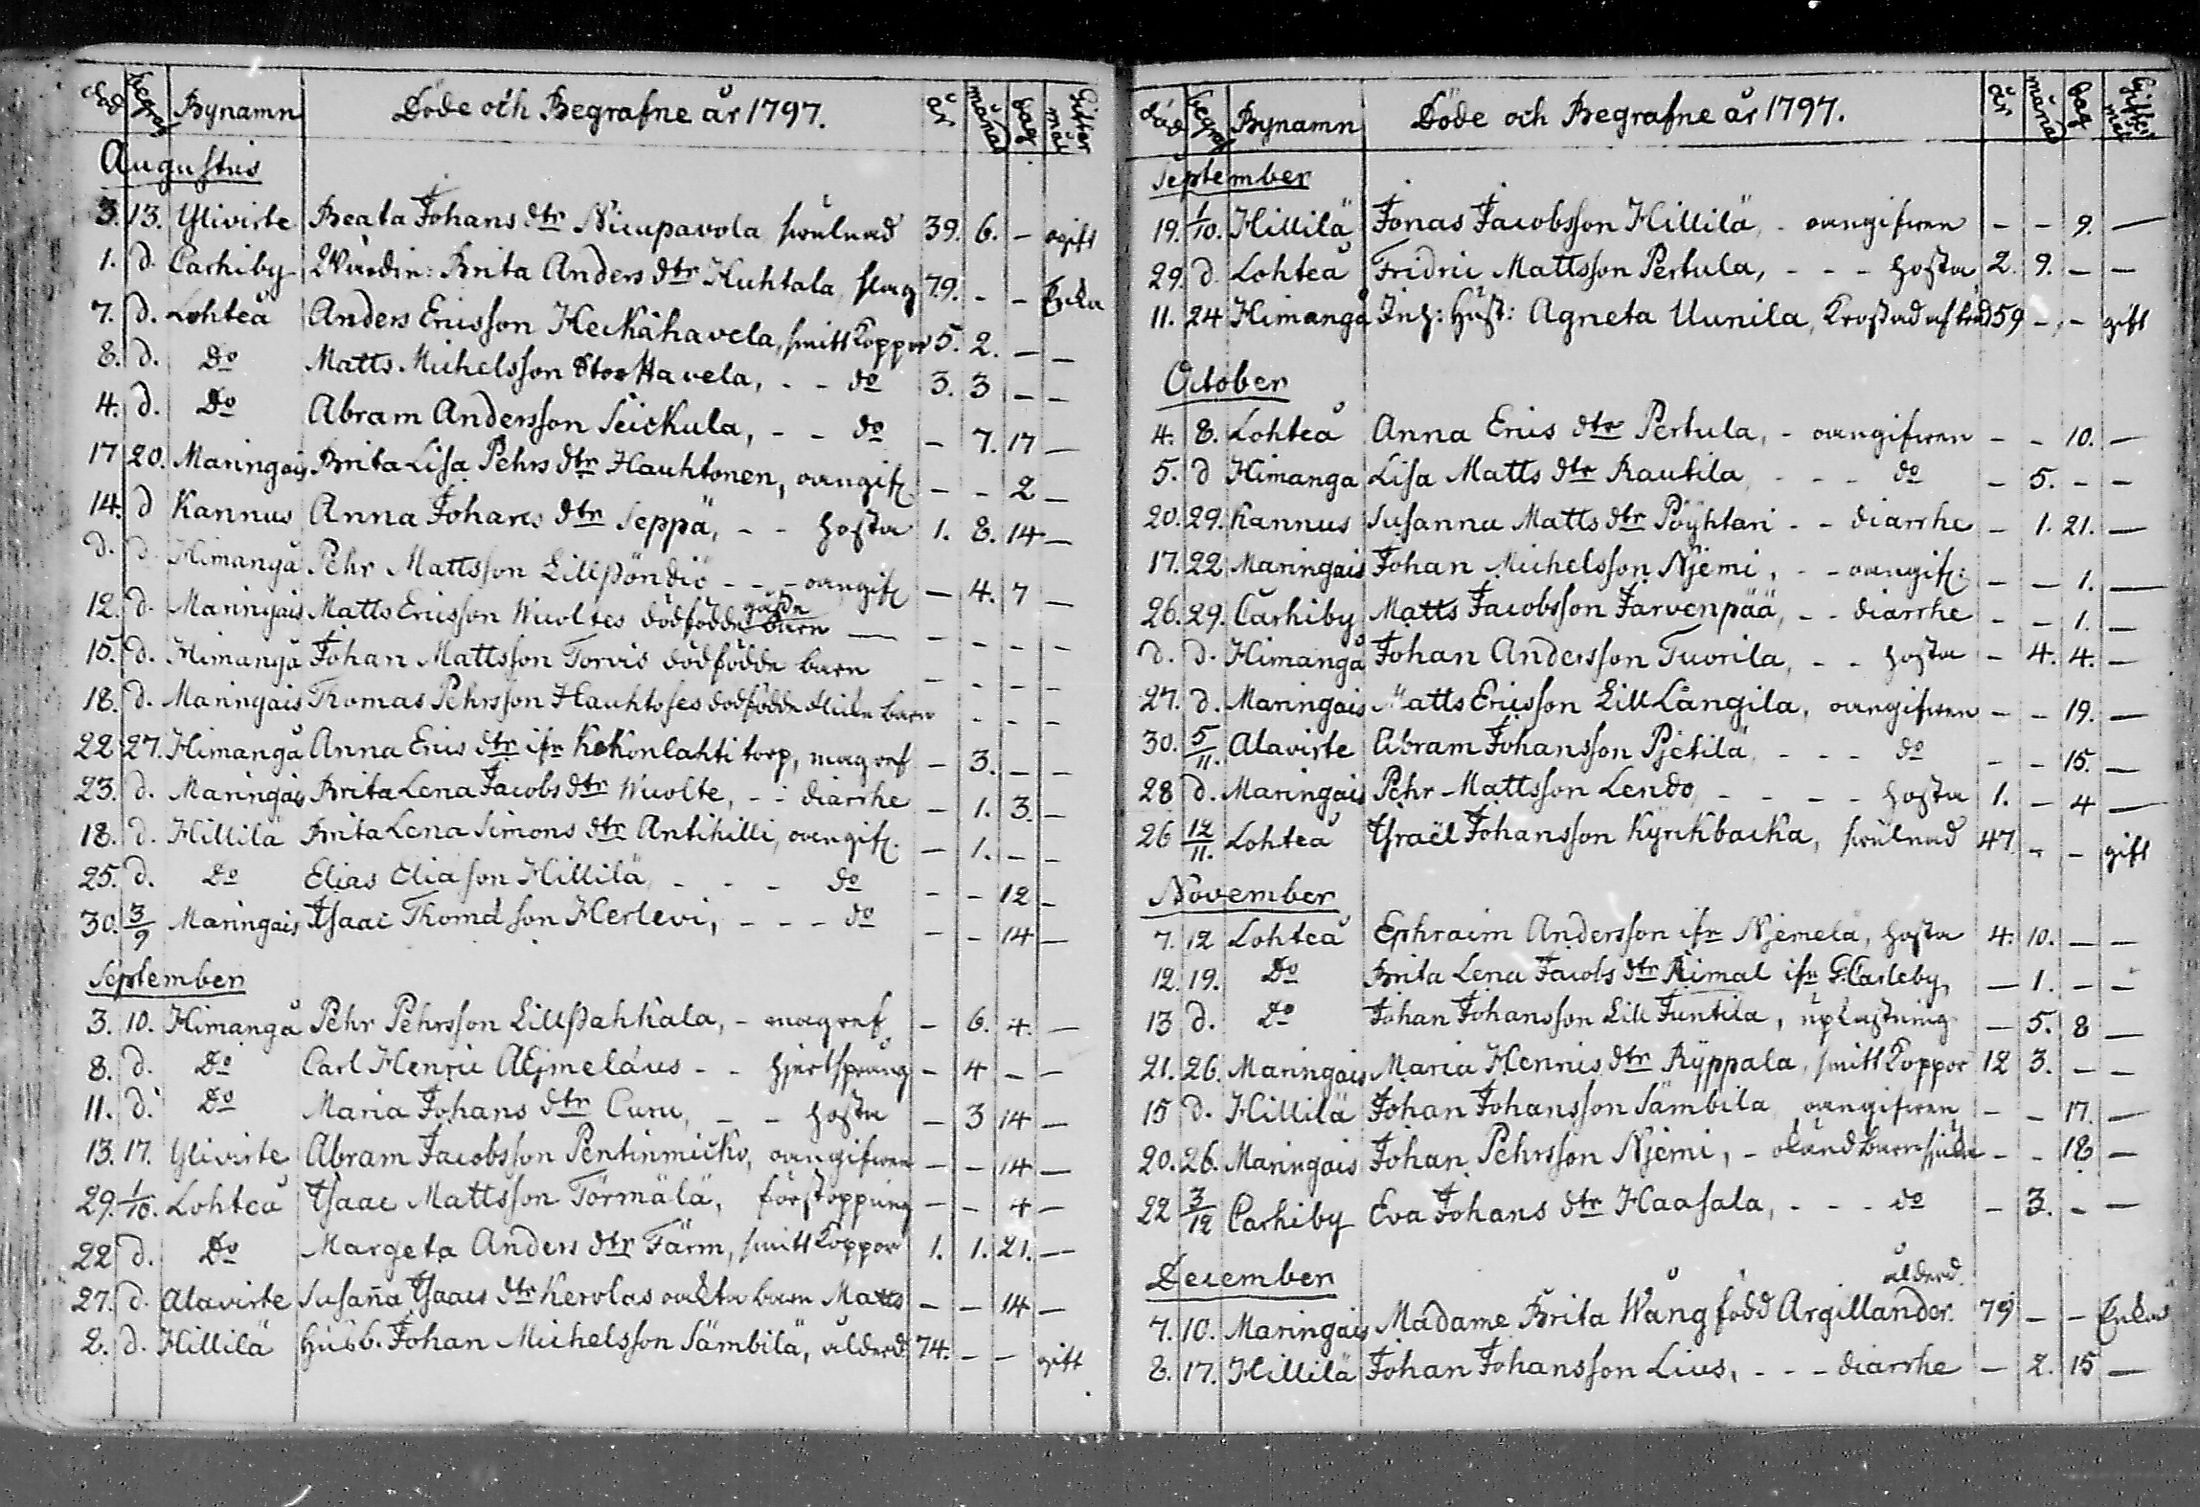 död begraf Bynamn Döde och Begrafne år 1797. år månad dag Gifter mål
Augustus
3. 13. Ylivirte Beata Johans dtr Niempavola swulnad 39. 6. - ogift
1. d. Carhiby Wärdin: Brita Anders dtr Huhtala, slag 79. - - Enka
7. d. Lohteå Anders Ericsson Heickåhavela, smittkoppor 5. 2. - -
8. d. Do Matts Michelsson Stor Havela, - - do 3. 3 - -
4. d. Do Abram Andersson Seickula, - - do - 7. 17 -
17 20. Maringais Brita Lisa Pehrs dtr Hauhtonen, oangif. - - 2 -
14. d Kannus Anna Johans dtr Seppä, - - hosta 1. 8. 14 -
d. d. Himangå Pehr Mattsson Lillpöndiö - - - oangif. - 4. 7 -
12. d. Maringais Matts Ericsson Wuoltes dödfödde barn - - - -
15. d. Himangå Johan Mattsson Torvis dödfödde barn - - - -
18. d. Maringais Thomas Pehrsson Hauhtoses dödfödde barn - - -
22 27. Himangå Anna Erics dtr ifr Kokonlahti torp, magref - 3. - -
23. d. Maringais Brita Lena Jacobs dtr Wuolte, - - diarrhe - 1. 3. -
18. d. Hillilä Brita Lena Simons dtr Antihilli, oangif. - 1. - -
25. d. Do Elias Eliasson Hillilä, - - - do - - 12 -
30. 3/9 Maringais Isaac Thomasson Herlevi, - - - do - - 14 -
September
3. 10. Himangå Pehr Pehrsson Lillpahkala, - magref - 6. 4. -
8. d. Do Carl Henric Aejmelaus - - hjertsprång - 4 - -
11. d. Do Maria Johans dtr Curu, - - hosta - 3 14 -
13. 17. Ylivirte Abram Jacobsson Pentinmicko, oangifwen - - 14 -
29. 1/10. Lohteå Isaac Mattsson Törmälä, förstoppning - - 4 -
22 d. Do Margeta Anders dtr Färm, smittkoppor 1. 1. 21. -
27. d. Alavirte Susaña Isaacs dtr Kerolas oäkta barn Matts - - 14 -
2. d. Hillilä Husb. Johan Michelsson Sämbilä, ålderd. 74. - - gift
död begraf Bynamn Döde och Begrafne år 1797. år månad dag Gifter mål
September
19. 1/10. Hillilä Jonas Jacobsson Hillilä, - oangifwen - - 9. -
29. d Lohteå Fridric Mattsson Pertula, - - - hosta 2. 9. - -
11. 24 Himangå Inh: Hust: Agneta Uunila, 59 - - gift
October
4. 8. Lohteå Anna Erics dtr Pertula, - oangifwen - - 10. -
5. d Himanga Lisa Matts dtr Rautila, - - - do - 5. - -
20. 29. Kannus Susanna Matts dtr Pöyhtari - - diarrhe - 1. 21. -
17. 22 Maringais Johan Michelsson Njemi, - - oangif: - - 1. -
26. 29. Carhiby Matts Jacobsson Jarvenpää, - - diarrhe - - 1. -
d. d. Himangå Johan Andersson Tuorila, - - hosta - 4. 4. -
27. d. Maringais Matts Ericsson Lill Långila, oangifwen - - 19. -
30. 5/11. Alavirte Abram Johansson Pjetilä, - - - do - - 15. -
28 d. Maringais Pehr Mattsson Lendo, - - - - hosta 1. - 4 -
26 12/11. Lohteå Israël Johansson Kyrckbacka, swulnad 47 - - gift
November
7. 12 Lohteå Ephraim Andersson ifr Njemelä, hosta 4. 10. - -
12. 19. Do Brita Lena Jacobs dtr Rimal ifr G:Carleby, - 1. - -
13 d. Do Johan Johansson Lill Juntila, upkastning - 5. 8 -
21. 26. Maringais Maria Henrics dtr Ryppala, smittkoppor 12 3. - -
15 d. Hillilä Johan Johansson Sämbilä oangifwen - - 17. -
20. 26. Maringais Johan Pehrsson Njemi, - okänd barnsjukd - - 18 -
22 3/12 Carhiby Eva Johans dtr Haasala, - - - do - 3. - -
December
ålderd.
7. 10. Maringais Madame Brita Wång född Argillander. 79 - - Enka
8. 17. Hillilä Johan Johansson Lius, - - - diarrhe - 2. 15 -